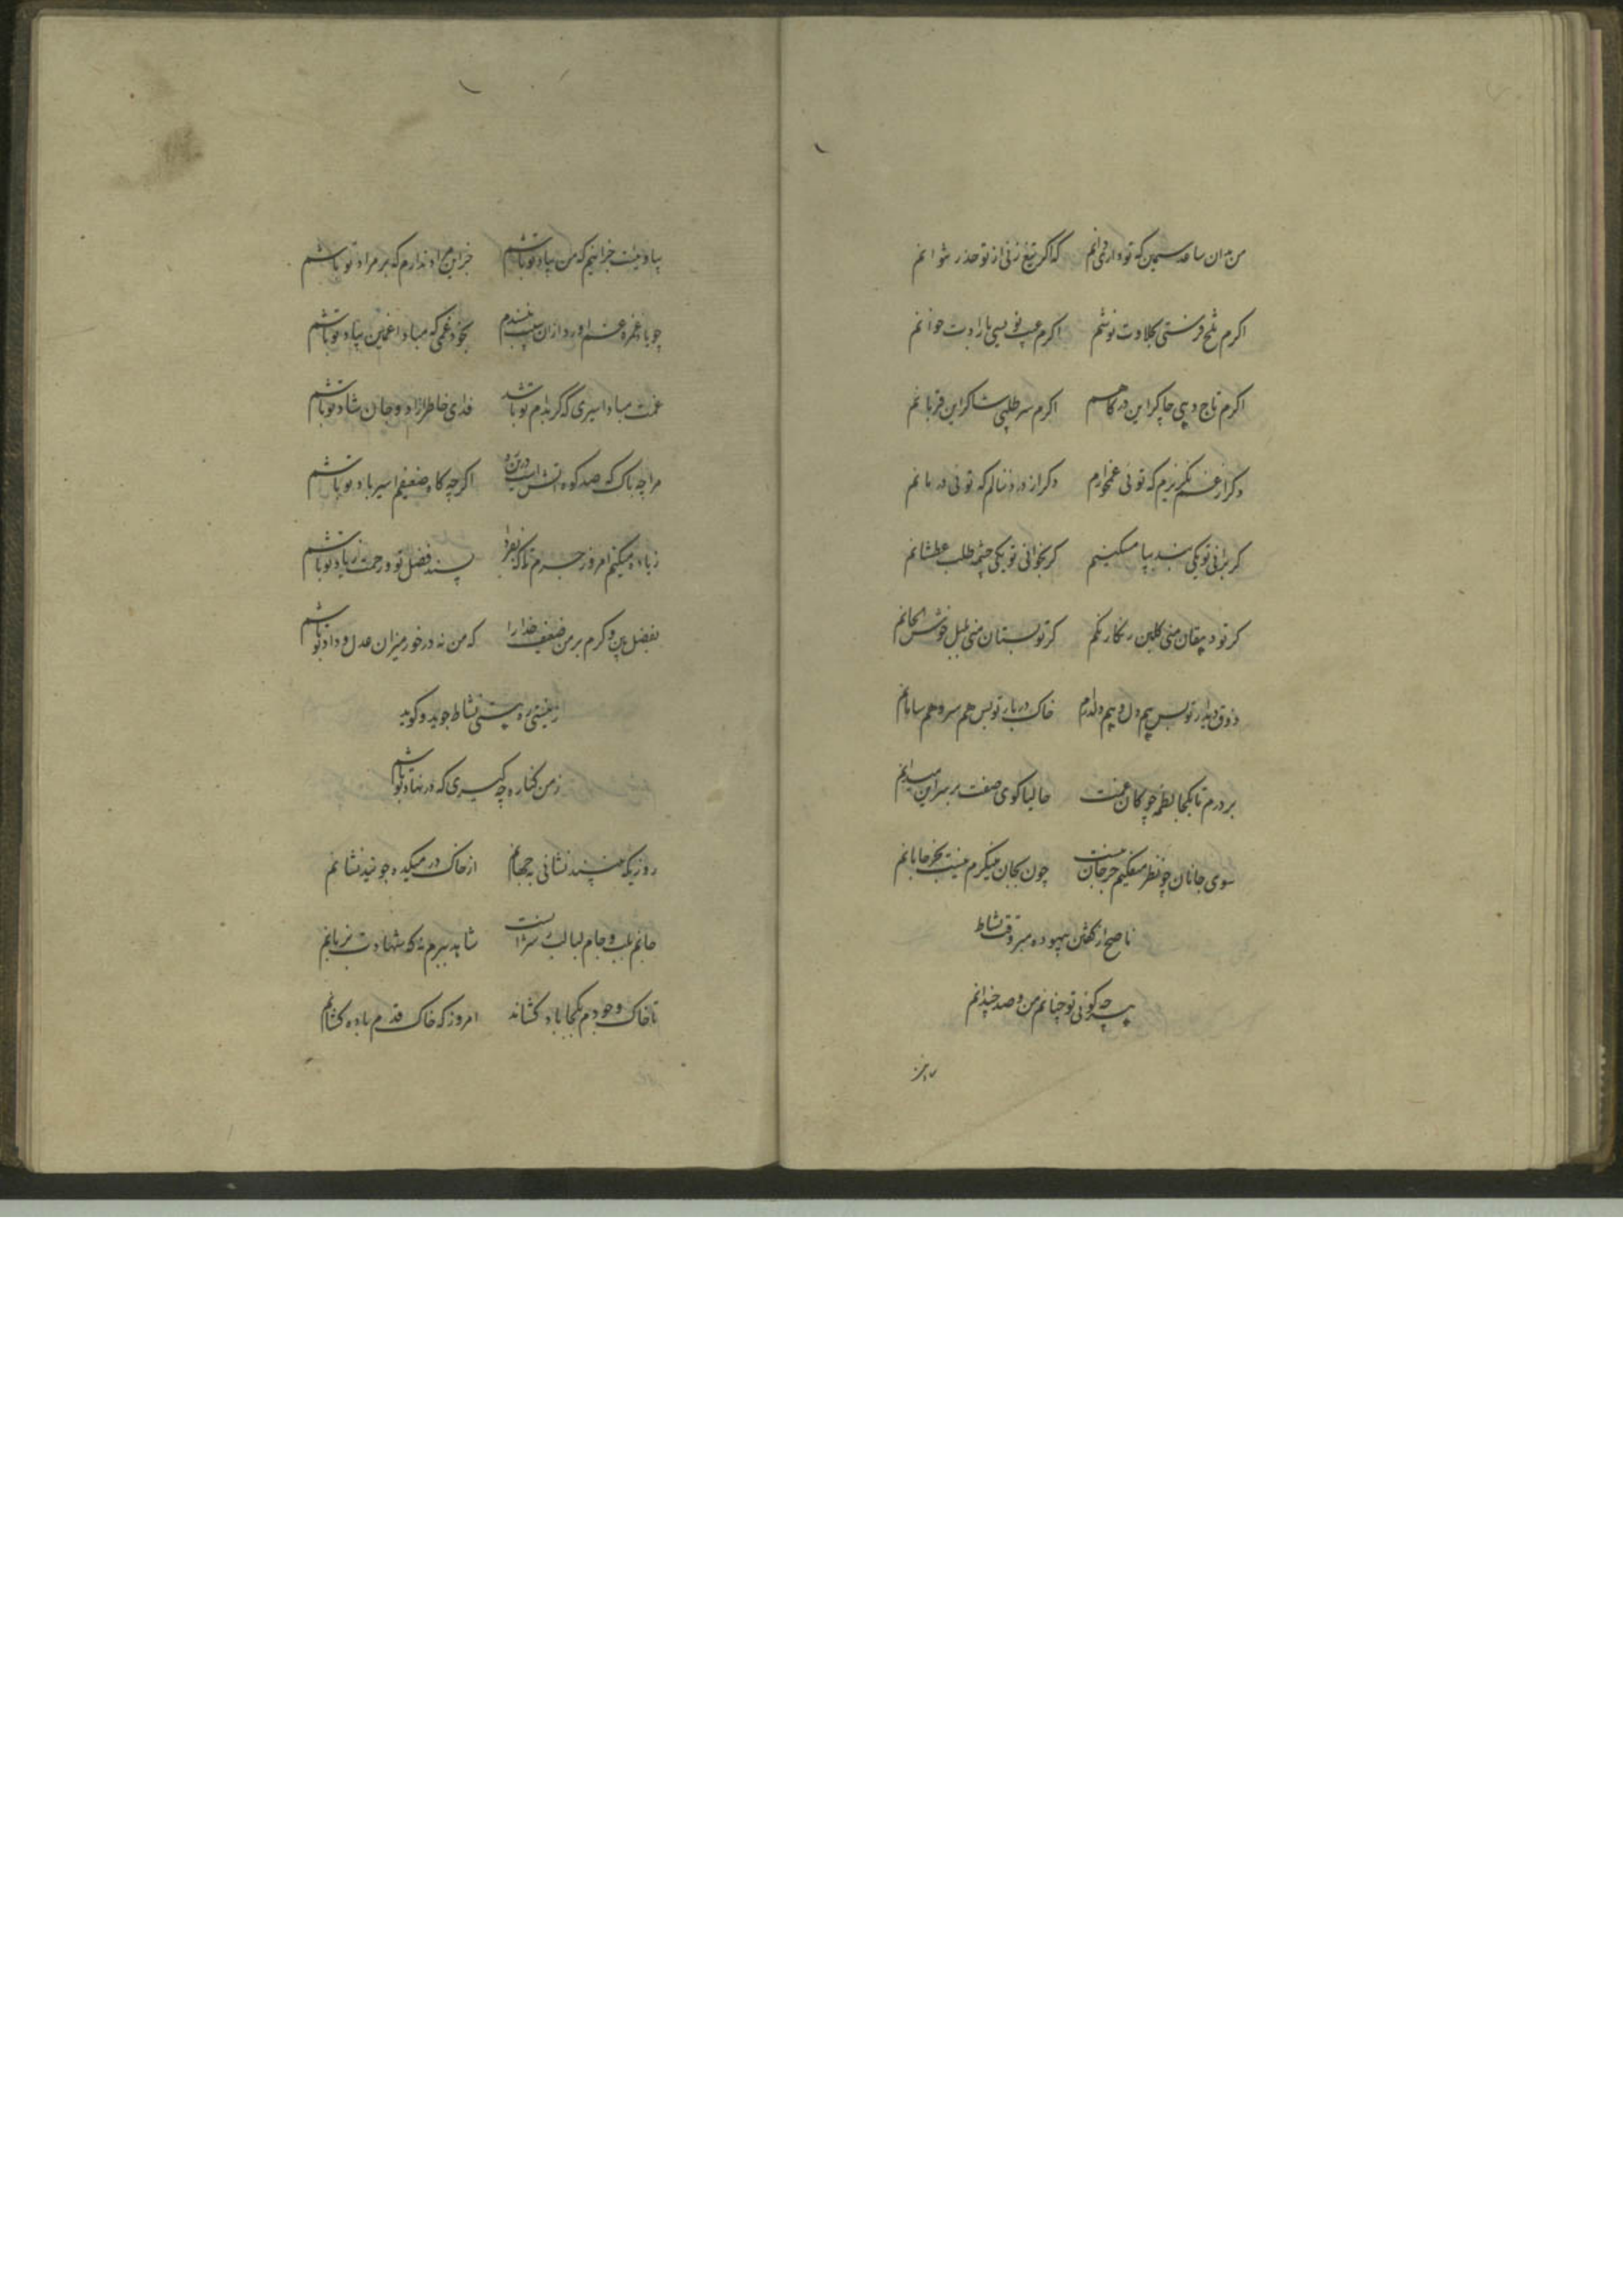 من بدان ساعد سیمین که تو داری دانم که اگر تیغ زنی از تو حذر نتوانم
اکرم تلخ فرستی بحلاوت نوشم اکرم عیب نویسی بارادت خوانم
اکرم تاج دهی چاکر این درکاهم اکرم سر طلبی شاکر این فرمانم
دکر از غم نکریزم که توئی غمخوارم دکر از درد ننالم که توئی درمانم
کر برانی تو یکی بنده بپا مسکینم کر بخوانی تو یکی چشمه طلب عطشانم
کر تو دهقان منی کلبن رنکارنکم کر تو بستان منی بلبل خوش الحانم
ذوق دیدار تو بس هم دل و هم دلدارم خاک دربار تو بس هم سر و هم سامانم
بردرم تا بکجا لطمه چوکان غمت حالیا کوی صفت بر سر این میدانم
سوی جانان چو نظر میفکنم جز جان نیست چون بجان مینکرم نیست بجز جانانم
ناصح از کفتن بیهوده مبر وقت نشاط
هر چه کوئی تو چنانم من و صد چندانم
بیاد نیست جز اینم که من بیاد تو باشم جز این مراد ندارم که بر مراد تو باشم
چو یاد غمزده غم آورد از آن نپسندم بخود غمی که مبادا غمین بیاد تو باشم
غمت مباد اسیری که کر بدام تو باشد فدای خاطر آزاد و جان شاد تو باشم
مرا چه باک که صد کوه آتش است درین ره اکرچه کاه ضعیفم اسیر باد تو باشم
زیاده میکنم امروز جرم تا که بفردا پسند فضل تو و رحمت زیاد تو باشم
بفضل بین و کرم بر من ضعیف خدا را که من نه درخور میزان عدل و داد تو باشم
ز نیستی ره هستی نشاط جوید و کوید
ز من کناره چه کیری که در نهاد تو باشم
روزیکه نبینند نشانی بجهانم از خاک در میکده جوئید نشانم
جانم بلب و جام لبالب شاید ببرم نه که شهادت بزبانم
تا خاک وجودم بکجا باد کشاند امروز که خاک قدم باده کشانم